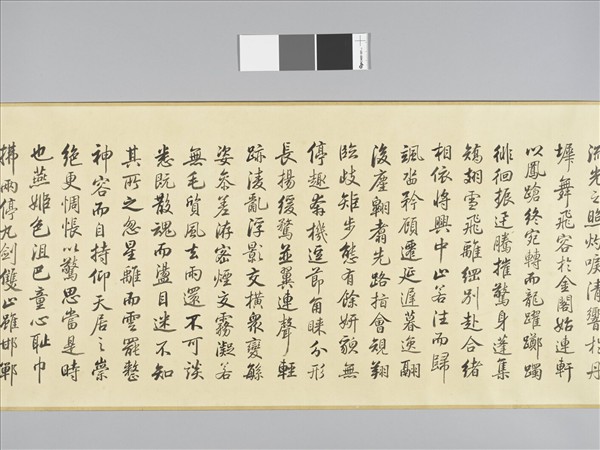 流光之照灼唳清響於丹
墀舞飛容於金閣始連軒
以鳳蹌終宛轉而龍躍躑躅
徘徊振迅騰摧驚身蓬集
矯翅雪飛離綱別赴合緒
相依將興中止若往而歸
颯沓矜顧遷延遲暮逸翮
後塵翱翥先路指會規翔
臨歧矩步態有餘妍貌無
停趣奔機逗節角睞分形
長揚緩鶩並翼連聲輕
跡凌亂浮影交橫衆變繁
姿參差洊密煙交霧凝若
無毛質風去雨還不可談
悉既散魂而盪目迷不知
其所之忽星離而雲罷整
神容而自持仰天居之崇
絕更惆悵以驚思當是時
也燕姬色沮巴童心恥巾
拂兩停丸劍雙止雖邯鄲